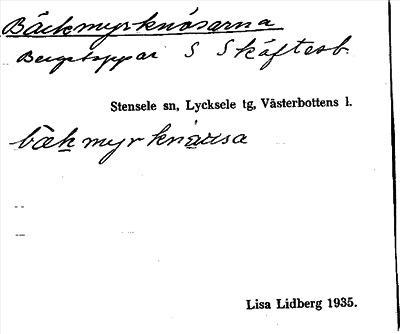 Bäckmyrknösarna
Bergstoppar S Skäftesb.
Stensele sn, Lycksele tg, Västerbottens l.
bækmyrknäusa
Lisa Lidberg 1935.